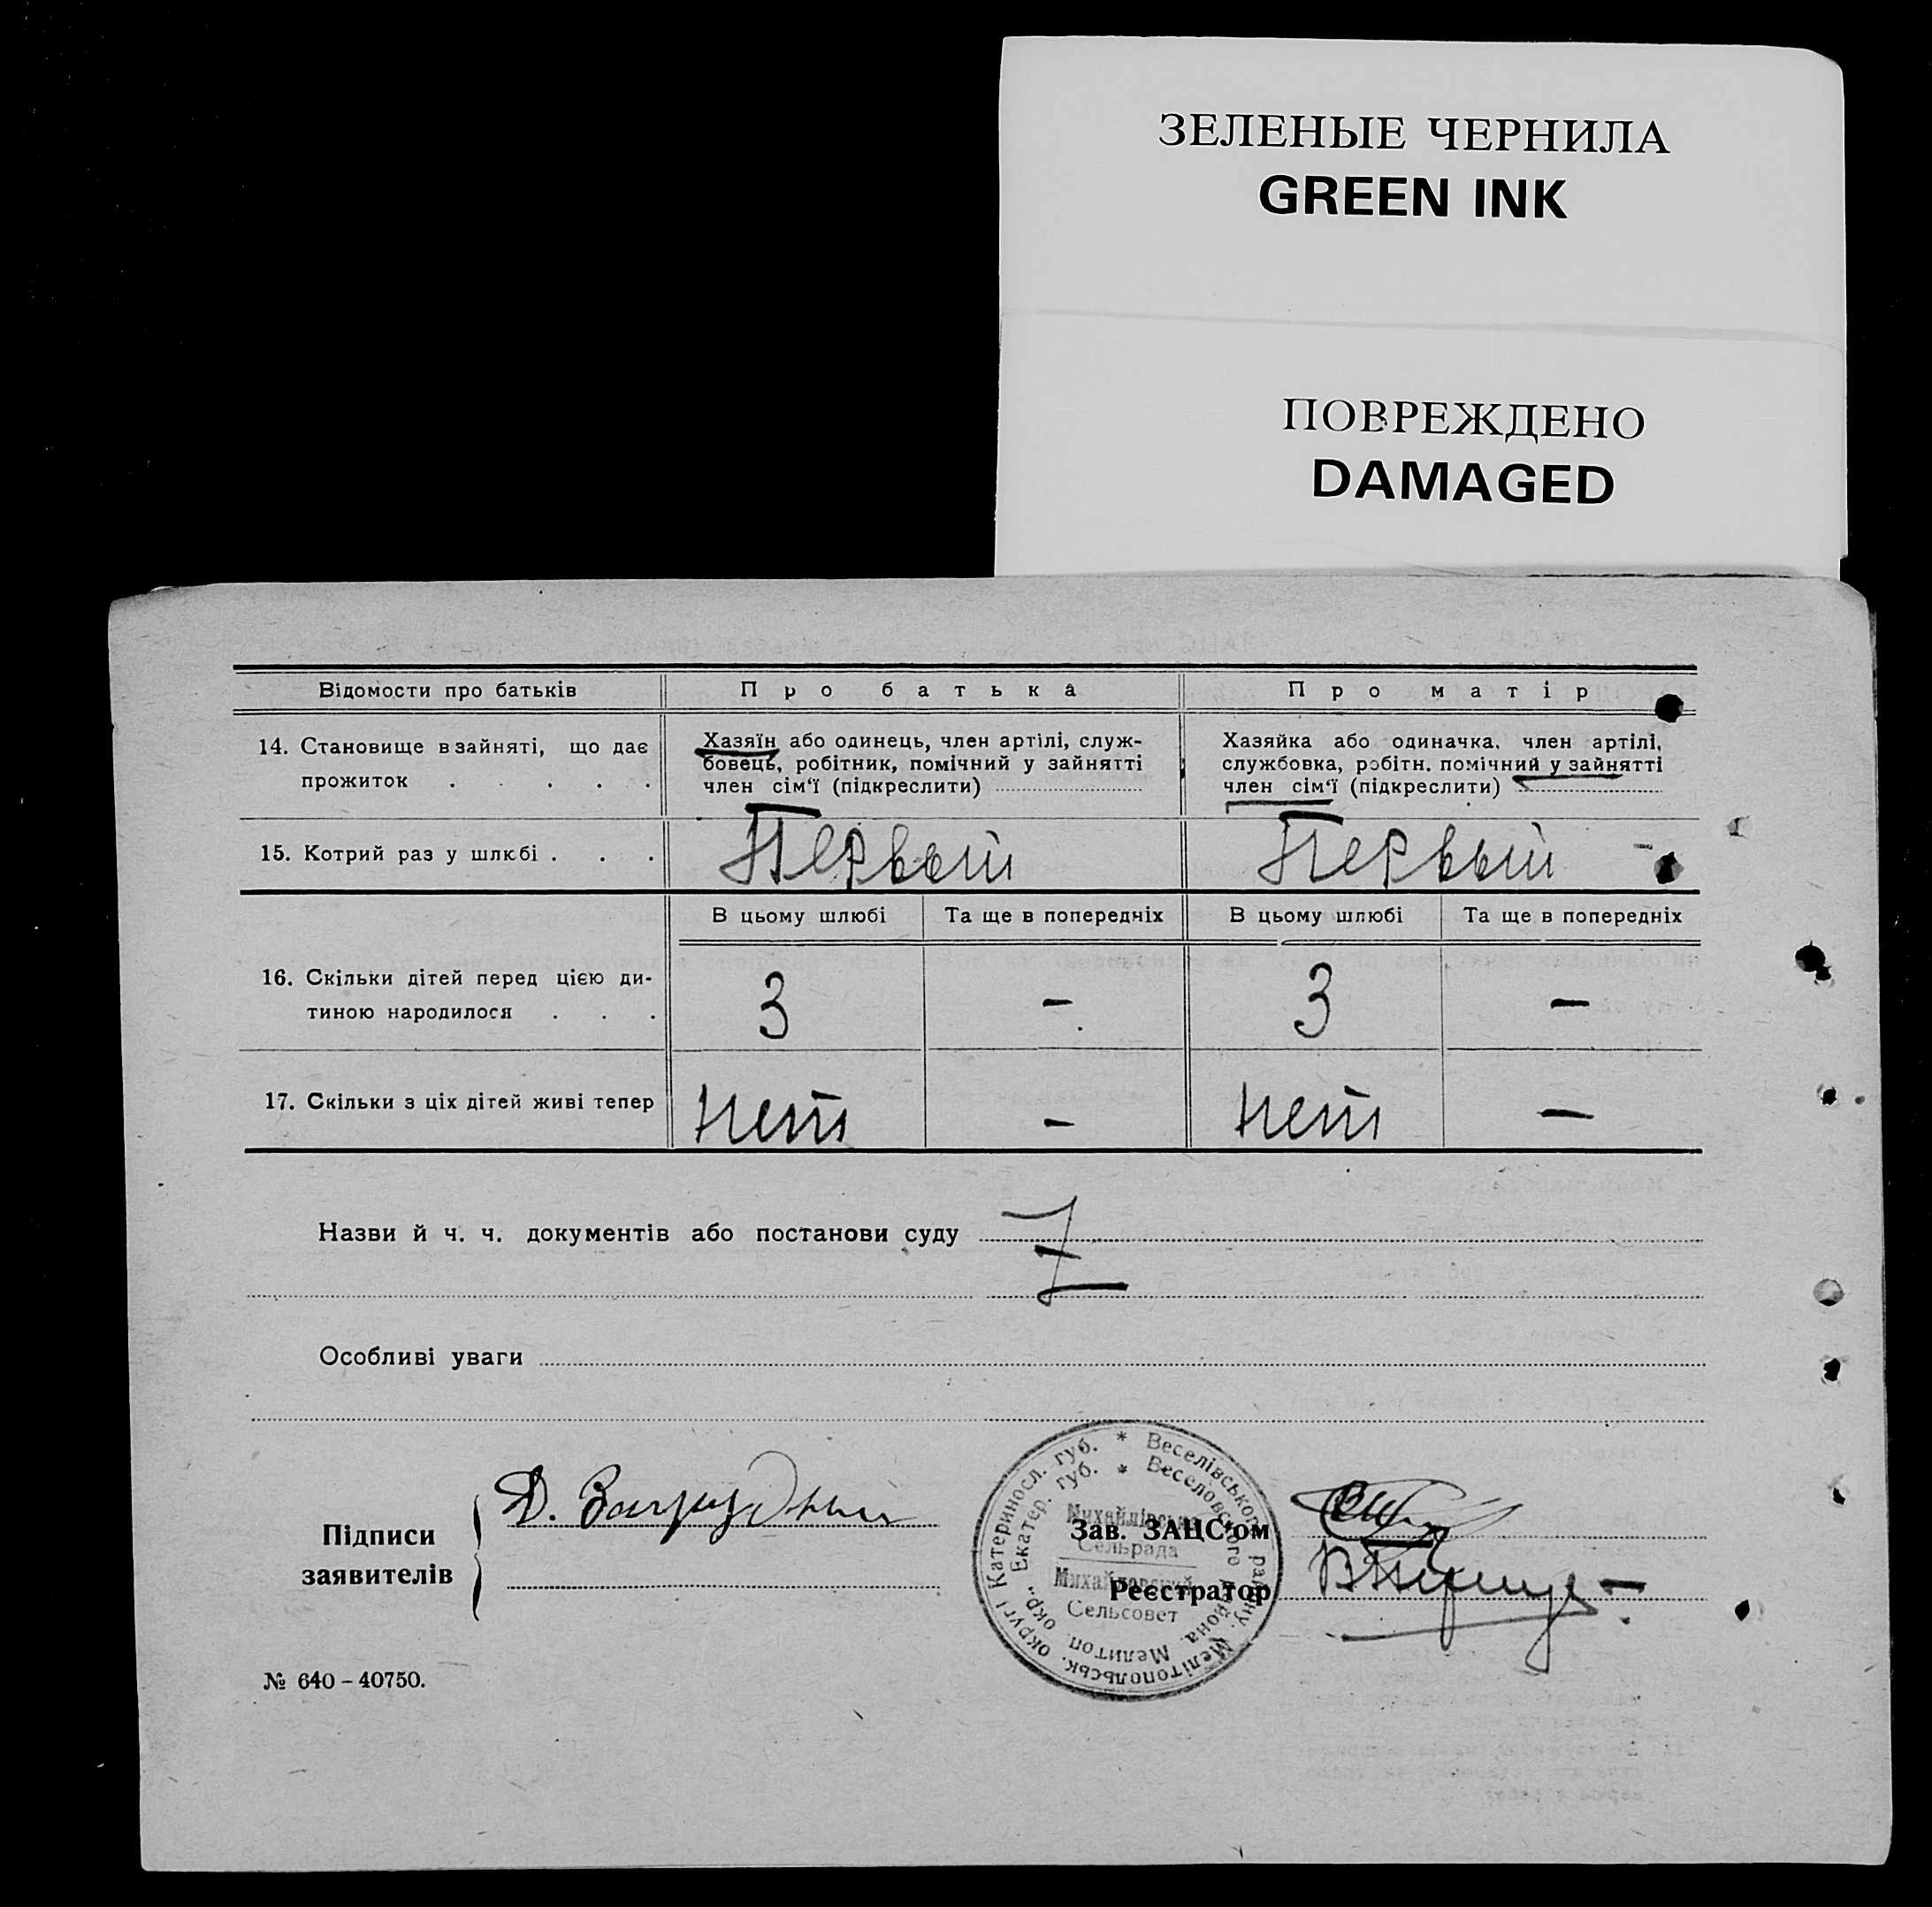 ЗЕЛЕНЫЕ ЧЕРНИЛА
GREEN INK
ПОВРЕЖДЕНО
DAMAGED
Відомости про батьків Про батька Про матір
14. Становище в зайняті, що дає прожиток . . . . .
Хазяїн або одинець, член артілі, служ-
бовець, робітник, помічний у зайнятті
член сім'ї (підкреслити)
Хазяйка або одиначка, член артілі,
службовка, робітн. помічний у зайнятті
член сім'ї (підкреслити)
15. Котрий раз у шлюбі . . . Первый Первый -
В цьому шлюбі Та ще в попередніх В цьому шлюбі Та ще в попередніх
16. Скільки дітей перед цією ди-
тиною народилося . . . 3 - 3 -
17. Скільки з ціх дітей живі тепер нет - нет -
Назви й ч. ч. документів або постанови суду
Особливі уваги
Підписи
заявителів
Д.
Зав. ЗАЦС'ом
Реєстратор
* Веселівського району. Мелітопольськ. округі Катериносл. губ.
* Веселовского района. Мелитоп. окр., Екатер. губ.
Михайлівська
Сельрада
Михайловский
Сельсовет
№ 640 – 40750.